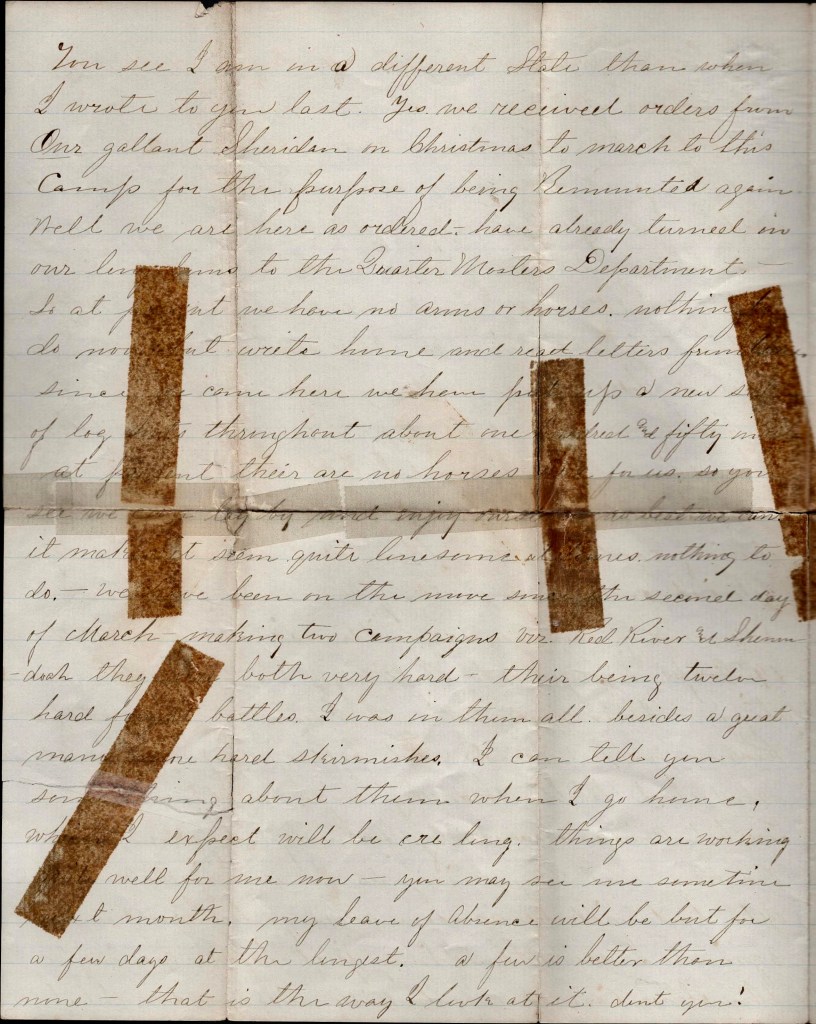 You see I am in a different State than when
I wrote to you last. Yes. we received orders from
Our gallant Sheridan on Christmas to march to this
Camp for the purpose of being Remounted again
Well we are here as ordered - have already turned in
our to the Quarter Masters Department -
So at we have no arms or horses. nothing
do now but write home and read letters from
since we came here we have up a new
of log throughout about one and fifty in
at their are no horses for us. so you
see we by and enjoy as best we can
it makes it seem quite lonesome at times. nothing to
do. - we have been on the move since the second day
of March - making two Campaigns viz. Red River and Shenan-
-doah they both very hard - their being twelve
hard battles. I was in them all. besides a great
many more hard skirmishes. I can tell you
something about them when I go home,
which I expect will be ere long. things are working
well for me now - you may see me sometime
next month. my leave of Absence will be but for
a few days at the longest. a few is better than
none - that is the way I look at it. dont you!